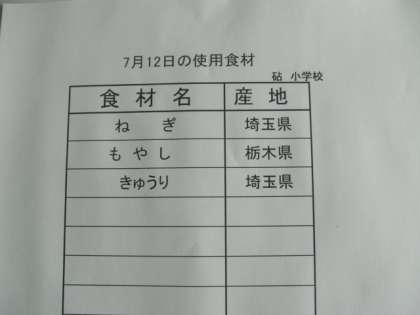 7月12日の使用食材
砧 小学校
食 材 名 産 地
ね ぎ 埼玉県
も や し 栃木県
きゅうり 埼玉県